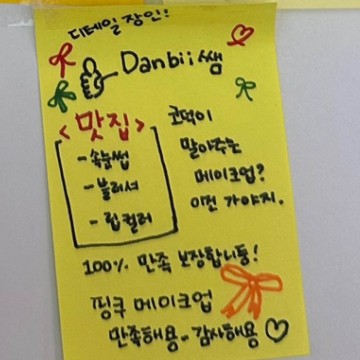 디테일 장인!
Danbii쌤
<맛집>
- 속눈썹
- 블러셔
- 립컬러
코덕이
말아주는
메이크업?
이건 가야지.
100% 만족 보장합니듕!
핑쿠 메이크업
만족해용~감사해용♡